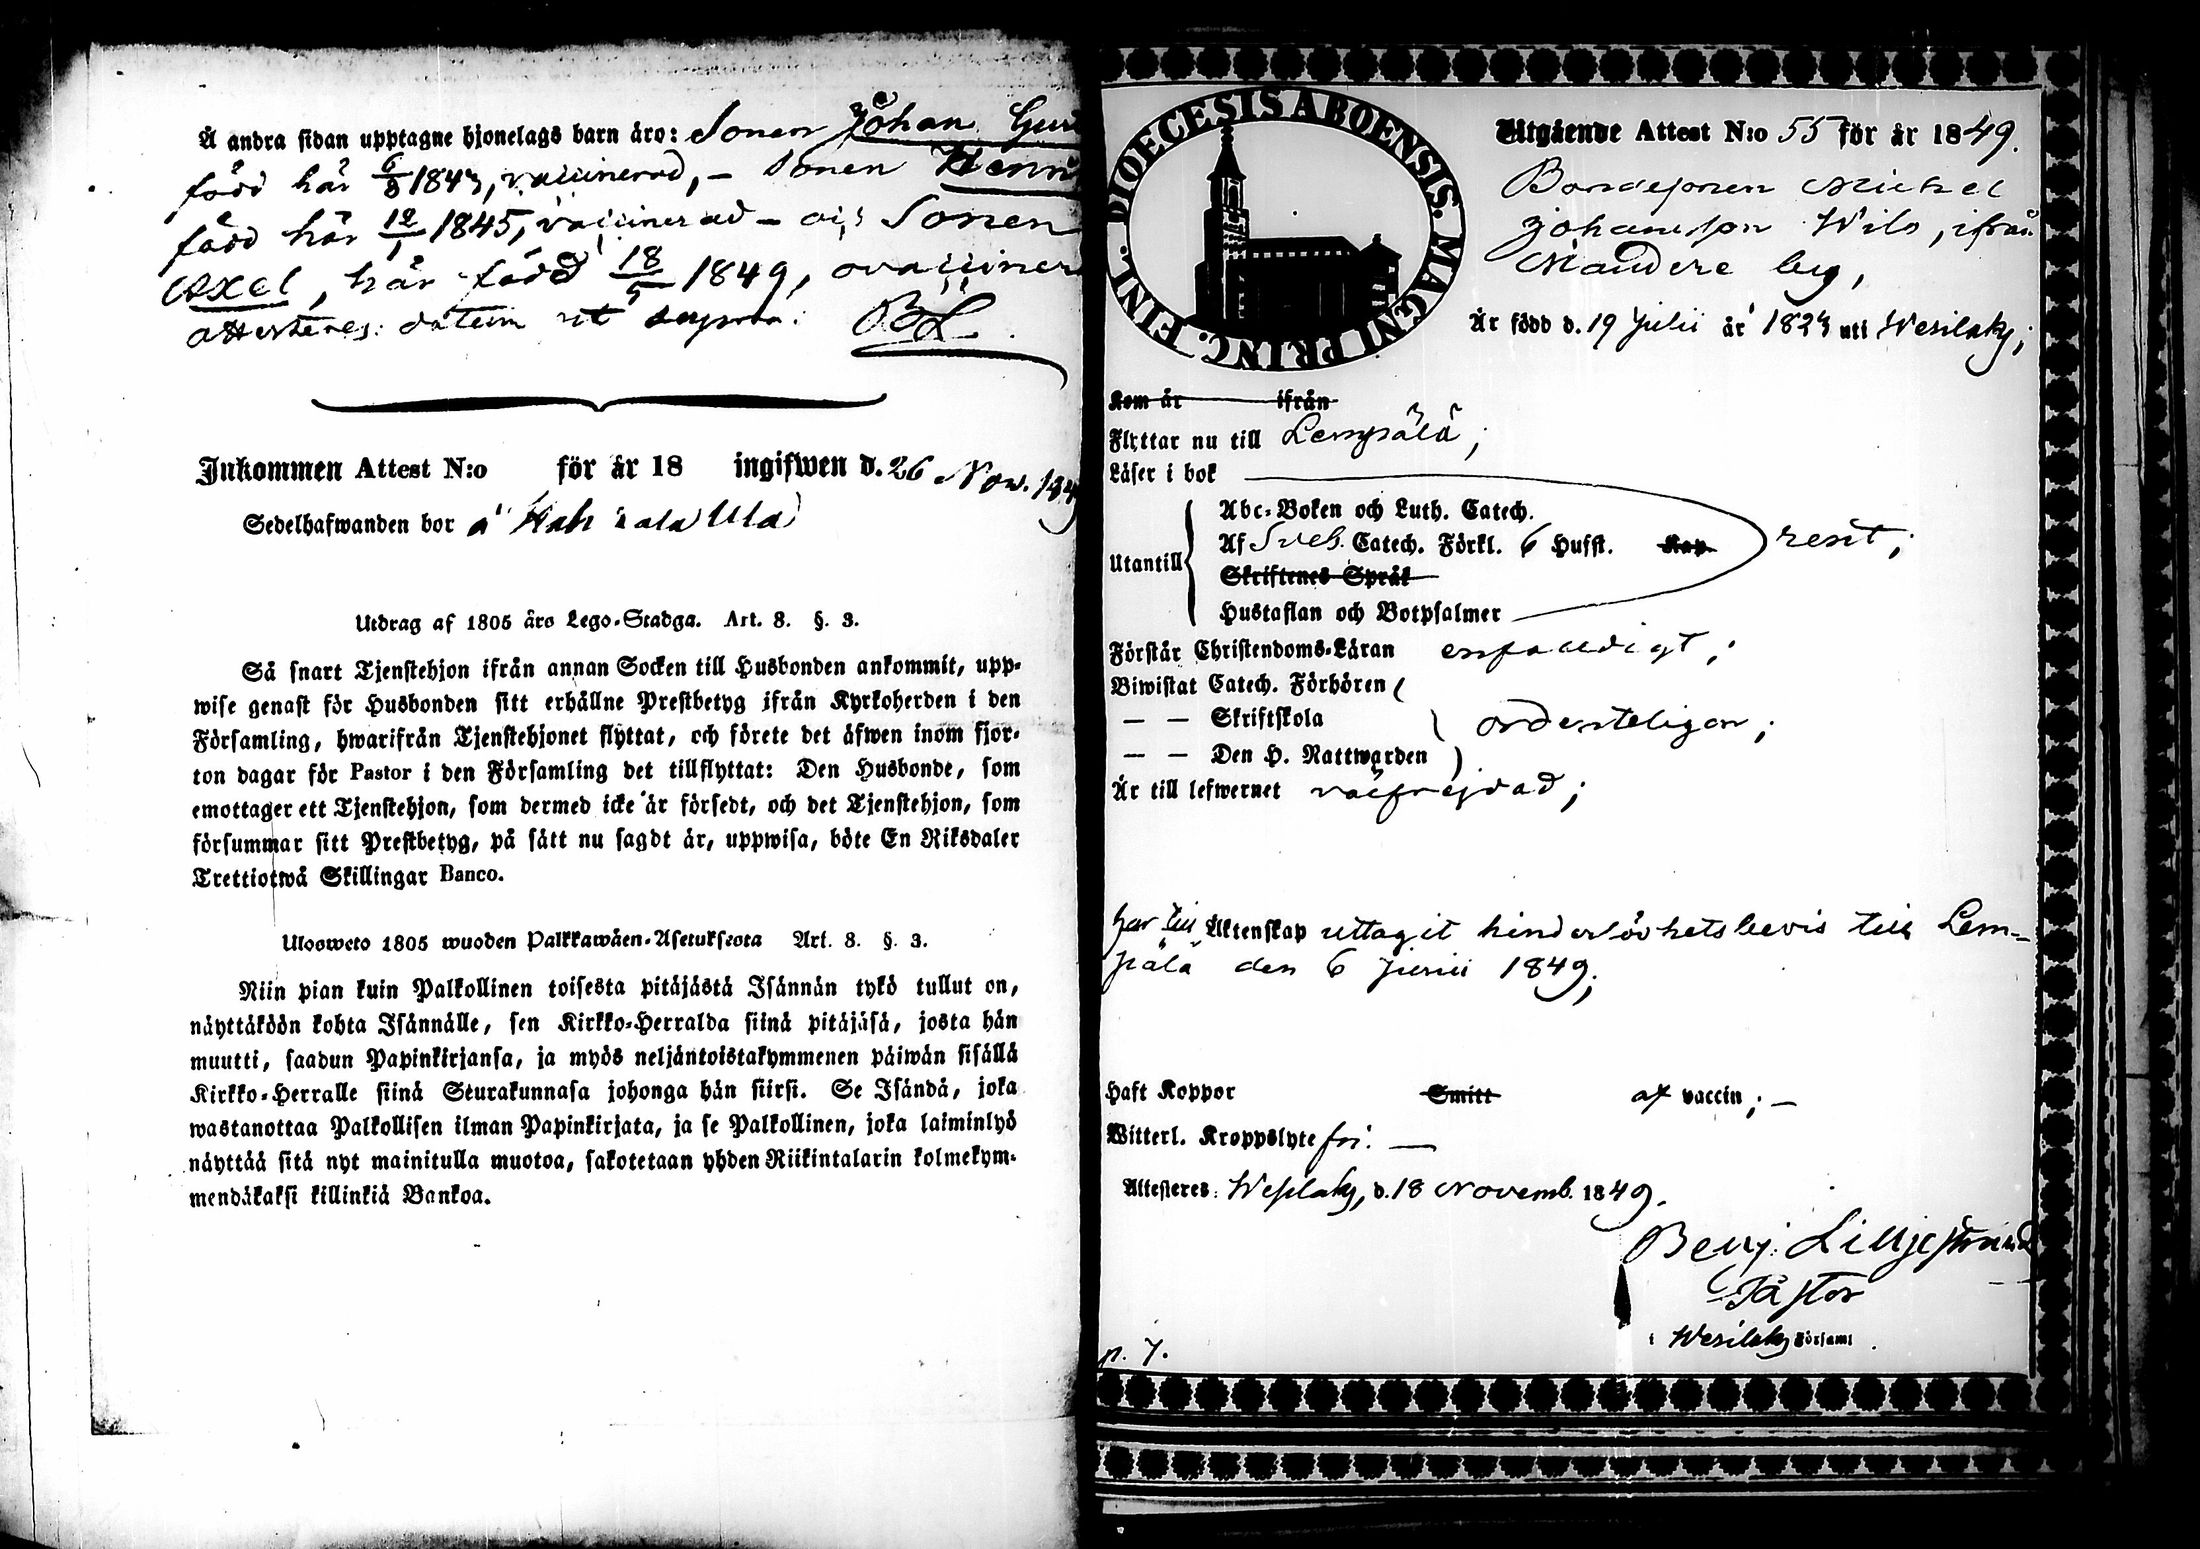 Å andra sidan upptagne hjonelags barn äro: Sonen Johan Gus
född här 6/3 1843, vaccinerad, – Sonen Henri
född här 12/1 1845, vaccinerad – och Sonen
Axel, här född 18/5 1849, ovacciner
attesteras datum ut supra. BL.
Inkommen Attest N:o för år 18 ingifwen d. 26 Nov. 1849
Sedelhafwanden bor å
Utdrag af 1805 års Lego-Stadga. Art. 8. §. 3.
Så snart Tjenstehjon ifrån annan Socken till Husbonden ankommit, upp-
wise genast för Husbonden sitt erhållne Prestbetyg ifrån Kyrkoherden i den
Församling, hwarifrån Tjenstehjonet flyttat, och förete det äfwen inom fjor-
ton dagar för Pastor i den Församling det tillflyttat: Den Husbonde, som
emottager ett Tjenstehjon, som dermed icke är försedt, och det Tjenstehjon, som
försummar sitt Prestbetyg, på sätt nu sagdt är, uppwisa, böte En Riksdaler
Trettiotwå Skillingar Banco.
Ulosweto 1805 wuoden Palkkawäen-Asetuksesta Art. 8. §. 3.
Niin pian kuin Palkollinen toisesta pitäjästä Isännän tykö tullut on,
näyttäköön kohta Isännälle, sen Kirkko-Herralda siinä pitäjäsä, josta hän
muutti, saadun Papinkirjansa, ja myös neljäntoistakymmenen päiwän sisällä
Kirkko-Herralle siinä Seurakunnasa johonga hän siirsi. Se Isändä, joka
wastanottaa Palkollisen ilman Papinkirjata, ja se Palkollinen, joka laiminlyö
näyttää sitä nyt mainitulla muotoa, sakotetaan yhden Riikintalarin kolmekym-
mendäkaksi killinkiä Bankoa.
DIOECESIS ABOENSIS. MAGNI PRINC. FINL.
Utgående Attest N:o 55 för år 1849.
Bondesonen Michel
Johansson Wils, ifrån
Naudere by,
Är född d. 19 Julii år 1823 uti Wesilaks;
Kom år ifrån
Flyttar nu till Lempälä;
Läser i bok
Abc-Boken och Luth. Catech.
Utantill Af Sveb. Catech. Förkl. 6 Hufst. Kap. rent;
Skriftenes Språk
Hustaflan och Botpsalmer
Förstår Christendoms-Läran enfaldigt;
Biwistat Catech. Förhören
— — Skriftskola ordenteligen;
— — Den H. Nattwarden
Är till lefwernet välfrejdad;
har till Äktenskap uttagit hinderslöshetsbevis till Lem-
pälä den 6 Junii 1849;
Haft Koppor Smitt af vaccin; —
Witterl. Kroppslyte fri. —
Attesteres: Wesilaks, d. 18 Novemb. 1849.
Benj. Lilljestrand
Pastor
i Wesilaks Församl
p. 7.